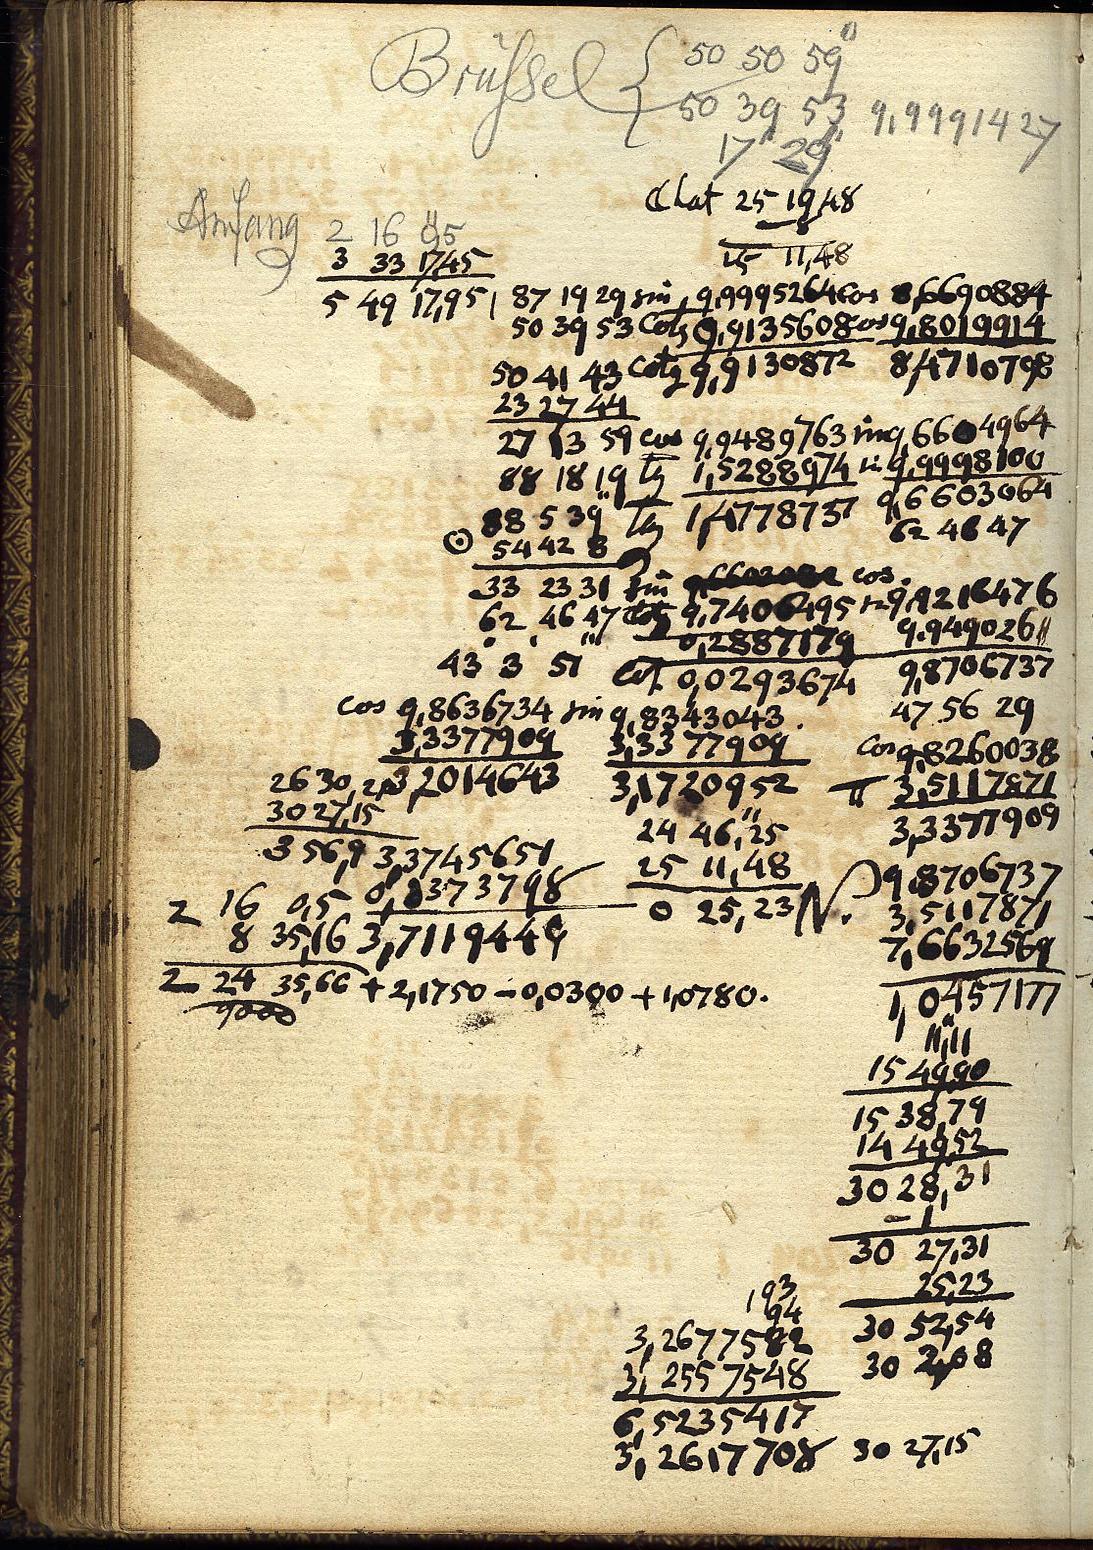 Brüssel { 50 50 59"
50 39 53 9,9991427
17" 29"
Clat 25 19,48
Anfang 2 16 0,5
8
3 33 17,45
25 11,48
5 49 17,95 87 19 29 sin 9,9995264 cos 8,6690884
50 39 53 cotg 9,9135608 cos 9,8019914
50 41 43 cotg 9,9130872 8,4710798
23 27 44
27 13 59 cos 9,9489763 sin 9,6604964
88 18 19 tg 1,5288974 sin 9,9998100
9,6603064
88 5 39" tg 1,4778737
62 46 47
☉ 54 42 8
33 23 31 sin cos 9,9216476
62 46 47 cotg 9,7406495 sin 9,9490261
0,2887179
43 3 51" cot. 0,0293674 9,8706737
cos 9,8636734 sin 9,8343043. 47 56 29
3,3377909 3,3377909 cos 9,8260038
26 30,2 3,2014643 3,1720952 π 3,5117871
30 27,15 3,3377909
24 46,25
3 56,9 3,3745651 25 11,48 9,8706737
2 16 0,5 0,3373798 0 25,23 N. 3,5117871
8 35,16 3,7119449 7,6632569
2 24 35,66 + 2,1750 - 0,0300 + 1,0780.
1,0457177
11,11
15 49,90
15 38,79
14 49,52
30 28,31
- 1
30 27,31
25,23
193
94
30 52,54
3,2677582
30 2,08
3,2557548
6,5235417
3,2617708 30 27,15